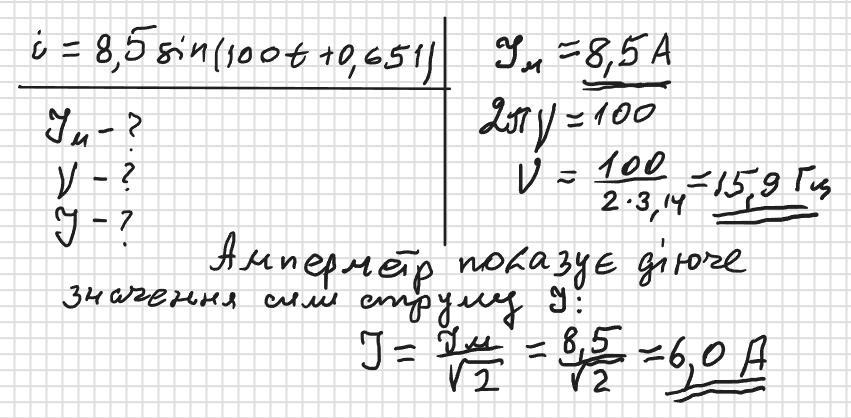 i = 8,5 sin(100t + 0,651)
I_м - ?
ν - ?
I - ?
I_м = 8,5 А
2πν = 100
ν = 100 / (2·3,14) = 15,9 Гц
Амперметр показує діюче
значення сили струму I:
I = I_м / √2 = 8,5 / √2 = 6,0 А